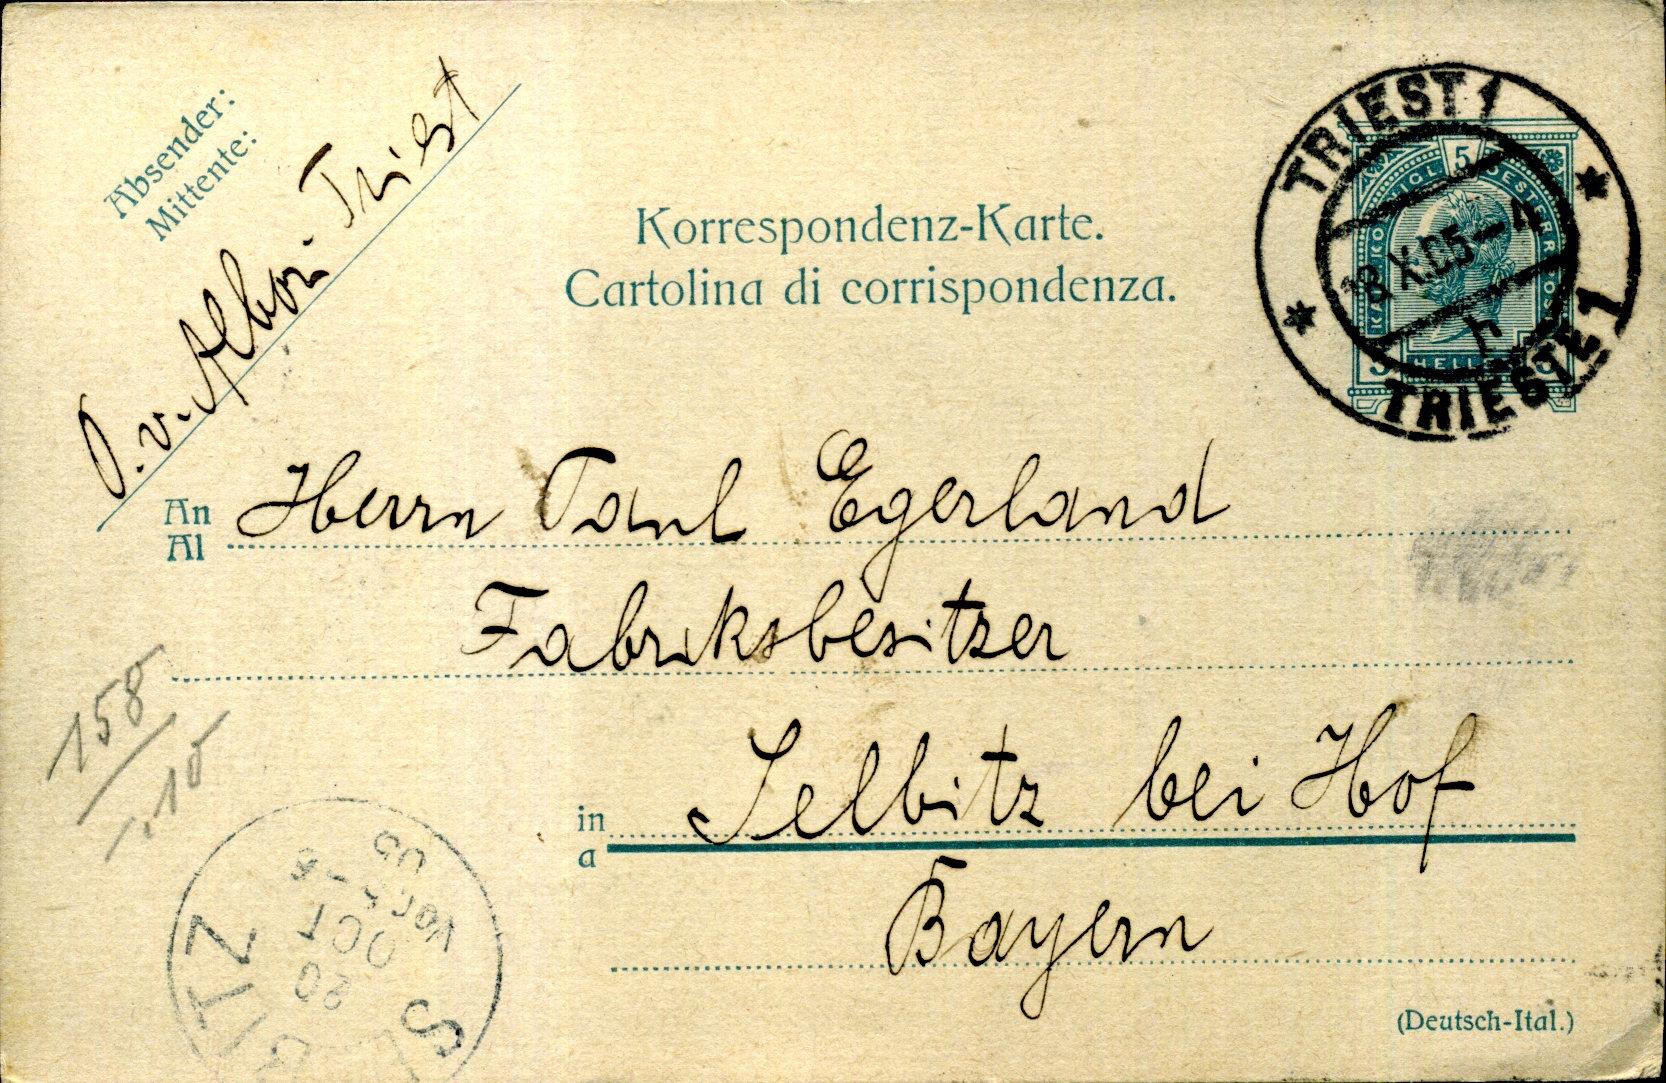 Absender:
Mittente:
P. v. Albori Triest
Korrespondenz-Karte.
Cartolina di corrispondenza.
TRIEST 1
18.X.05-4
TRIESTE 1
5
HELLER
An Herrn Paul Egerland
Al
Fabriksbesitzer
in Selbitz bei Hof
a
Bayern
(Deutsch-Ital.)
158
.10
SELBITZ
20
OCT
Vor
05